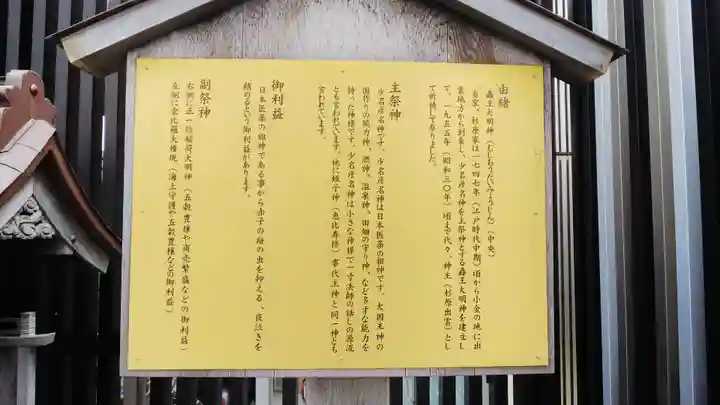 由緒
蟲王大明神(むしおうだいみょうじん)(中央)
当家、杉原家は一七四七年(江戸時代中期)頃から小金の地に出
雲地方から到来し、少名彦名神を主祭神とする蟲王大明神を建立し
て、一九五五年(昭和三〇年)頃まで代々、神主(杉原出雲)とし
て祈祷して参りました。
主祭神
少名彦名神です。少名彦名神は日本医薬の祖神です。大国主神の
国作りの協力神、酒神、温泉神、田畑の守り神、など多才な能力を
持った神様です。少名彦名神は小さな神様で一寸法師の話しの源流
とも言われています。他に蛭子神(恵比寿様)事代主神と同一神とも
言われています。
御利益
日本医薬の祖神である事から赤子の疳の虫を抑える、夜泣きを
鎮めるという御利益があります。
副祭神
右側に正一位稲荷大明神(五穀豊穣や商売繁盛などの御利益)
左側に金比羅大権現(海上守護や五穀豊穣などの御利益)